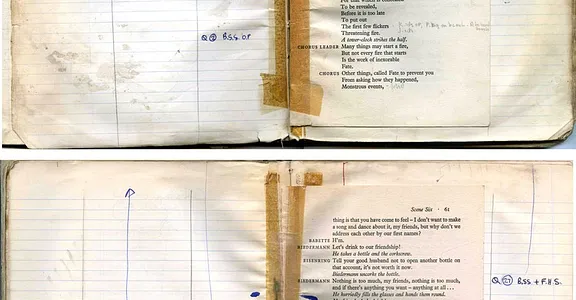 For that which is combustible
To be revealed,
Before it is too late
To put out
The first few flickers
Threatening fire.
A tower-clock strikes the half.
CHORUS LEADER Many things may start a fire,
But not every fire that starts
Is the work of inexorable
Fate.
CHORUS Other things, called Fate to prevent you
From asking how they happened,
Monstrous events,
Q B.S.S. OP
Some Six · 61
thing is that you have come to feel – I don't want to make
a song and dance about it, my friends, but why don't we
address each other by our first names?
BABETTE H'm.
BIEDERMANN Let's drink to our friendship!
He takes a bottle and the corkscrew.
EISENRING Tell your good husband not to open another bottle on
that account, it's not worth it now.
Biedermann uncorks the bottle.
BIEDERMANN Nothing is too much, my friends, nothing is too much,
and if there's anything you want – anything at all ...
He hurriedly fills the glasses and hands them round.
Q 27 B.S.S + F.H.S.